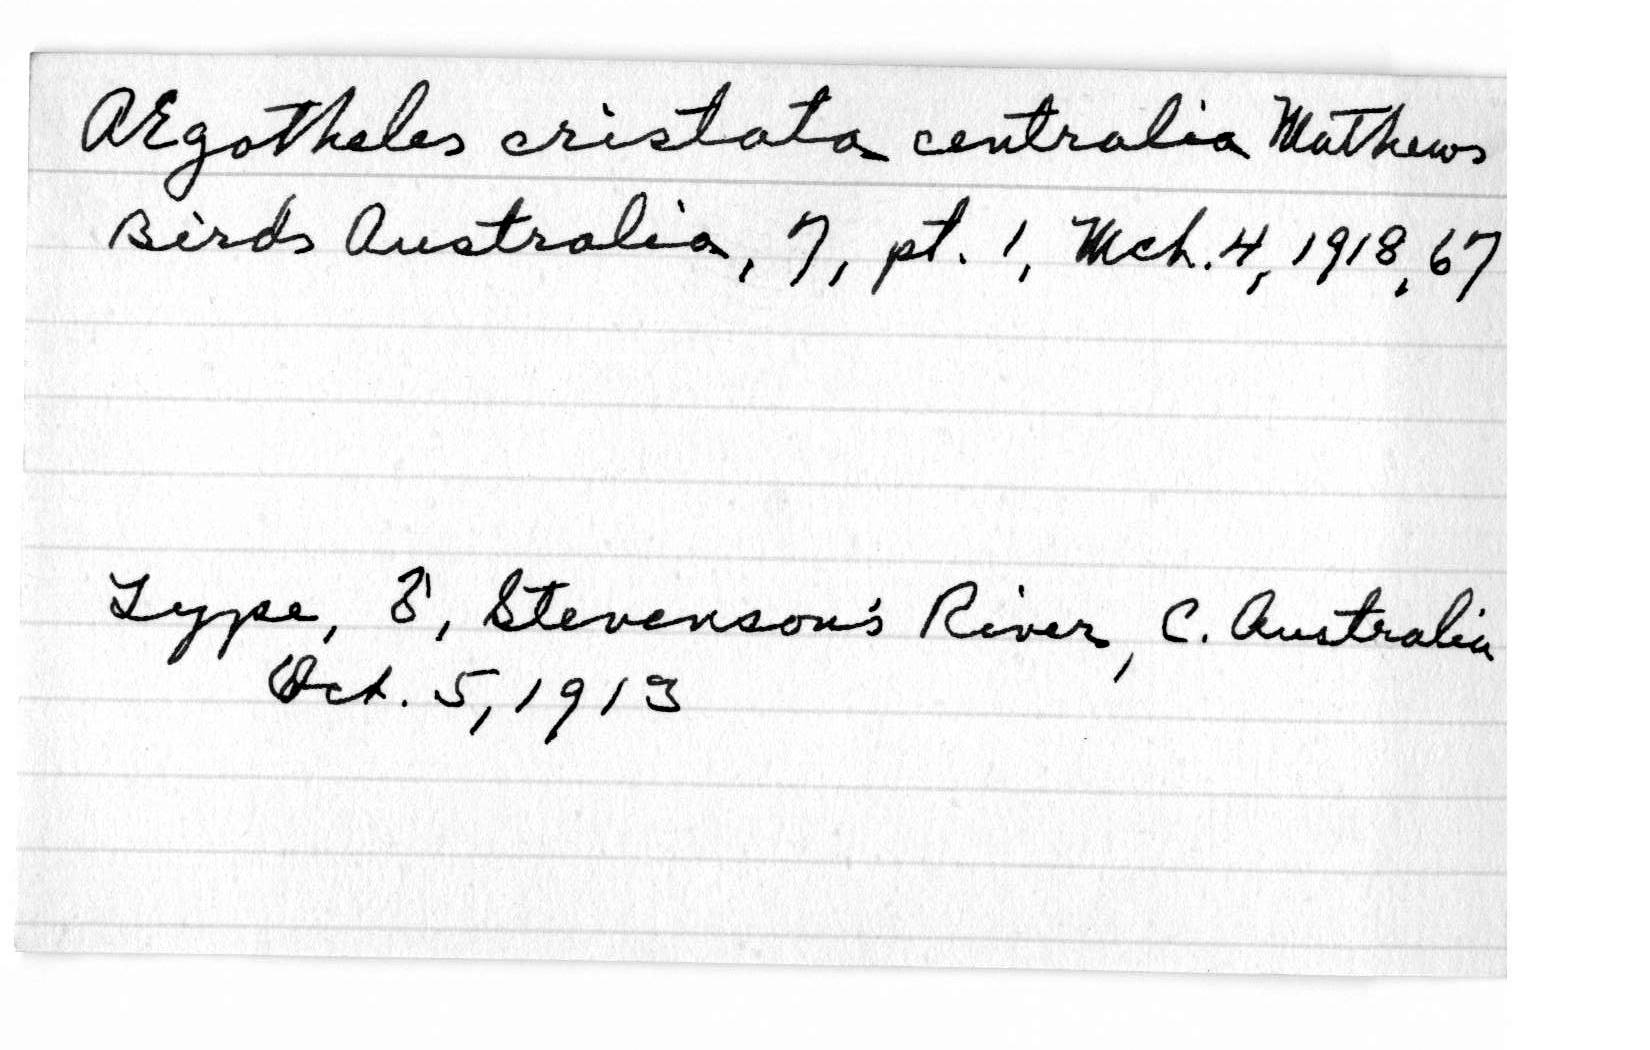 AEgotheles cristata centralia Mathews
Birds Australia, 7, pt. 1, Mch. 4, 1918, 67
Type, ♂, Stevenson's River, C. Australia
Oct. 5, 1913